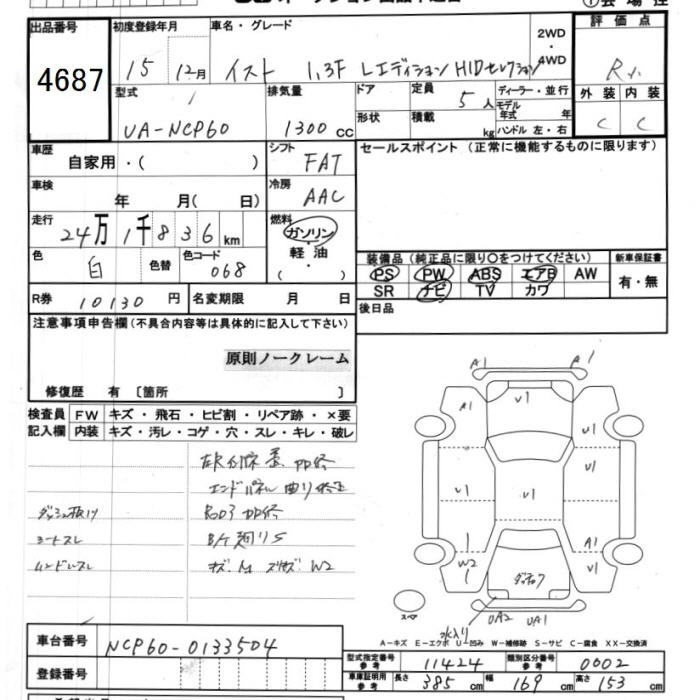 出品番号
4687
初度登録年月
15 12月
車名・グレード
イスト 1.3F Lエディション HIDセレクション
2WD
・
4WD
評価点
R
外装 内装
C C
型式
UA-NCP60
排気量
1300 cc
ドア
形状
定員
5人
積載
kg
ディーラー・並行
モデル
年式 年
ハンドル 左・右
車歴
自家用・( )
シフト
FAT
セールスポイント (正常に機能するものに限ります)
車検
年 月( 日)
冷房
AAC
走行
24万1千836km
燃料
ガソリン
・
軽油
( ・ )
色
白
色替
色コード
068
装備品 (純正品に限り○をつけてください)
PS PW ABS エアB AW
SR ナビ TV カワ
新車保証書
有・無
R券
10130円
名変期限 月 日
後日品
注意事項申告欄(不具合内容等は具体的に記入して下さい)
原則ノークレーム
修復歴 有 〔箇所 〕
検査員
記入欄
FW キズ・飛石・ヒビ割・リペア跡・×要
内装 キズ・汚レ・コゲ・穴・スレ・キレ・破レ
エンドパネル 曲り修正
シートスレ
W2
A1 A1
A1 U1
U1 U1
U1 U1
A1
W2 U1
UA2 UA1
水入り
スペア
A-キズ E-エクボ U-凹み W-補修跡 S-サビ C-腐食 XX-交換済
車台番号
NCP60-0133504
登録番号
型式指定番号
参考
11424
類別区分番号
参考
0002
車庫証明用
参考
長さ 385cm 幅 169cm 高さ 153cm